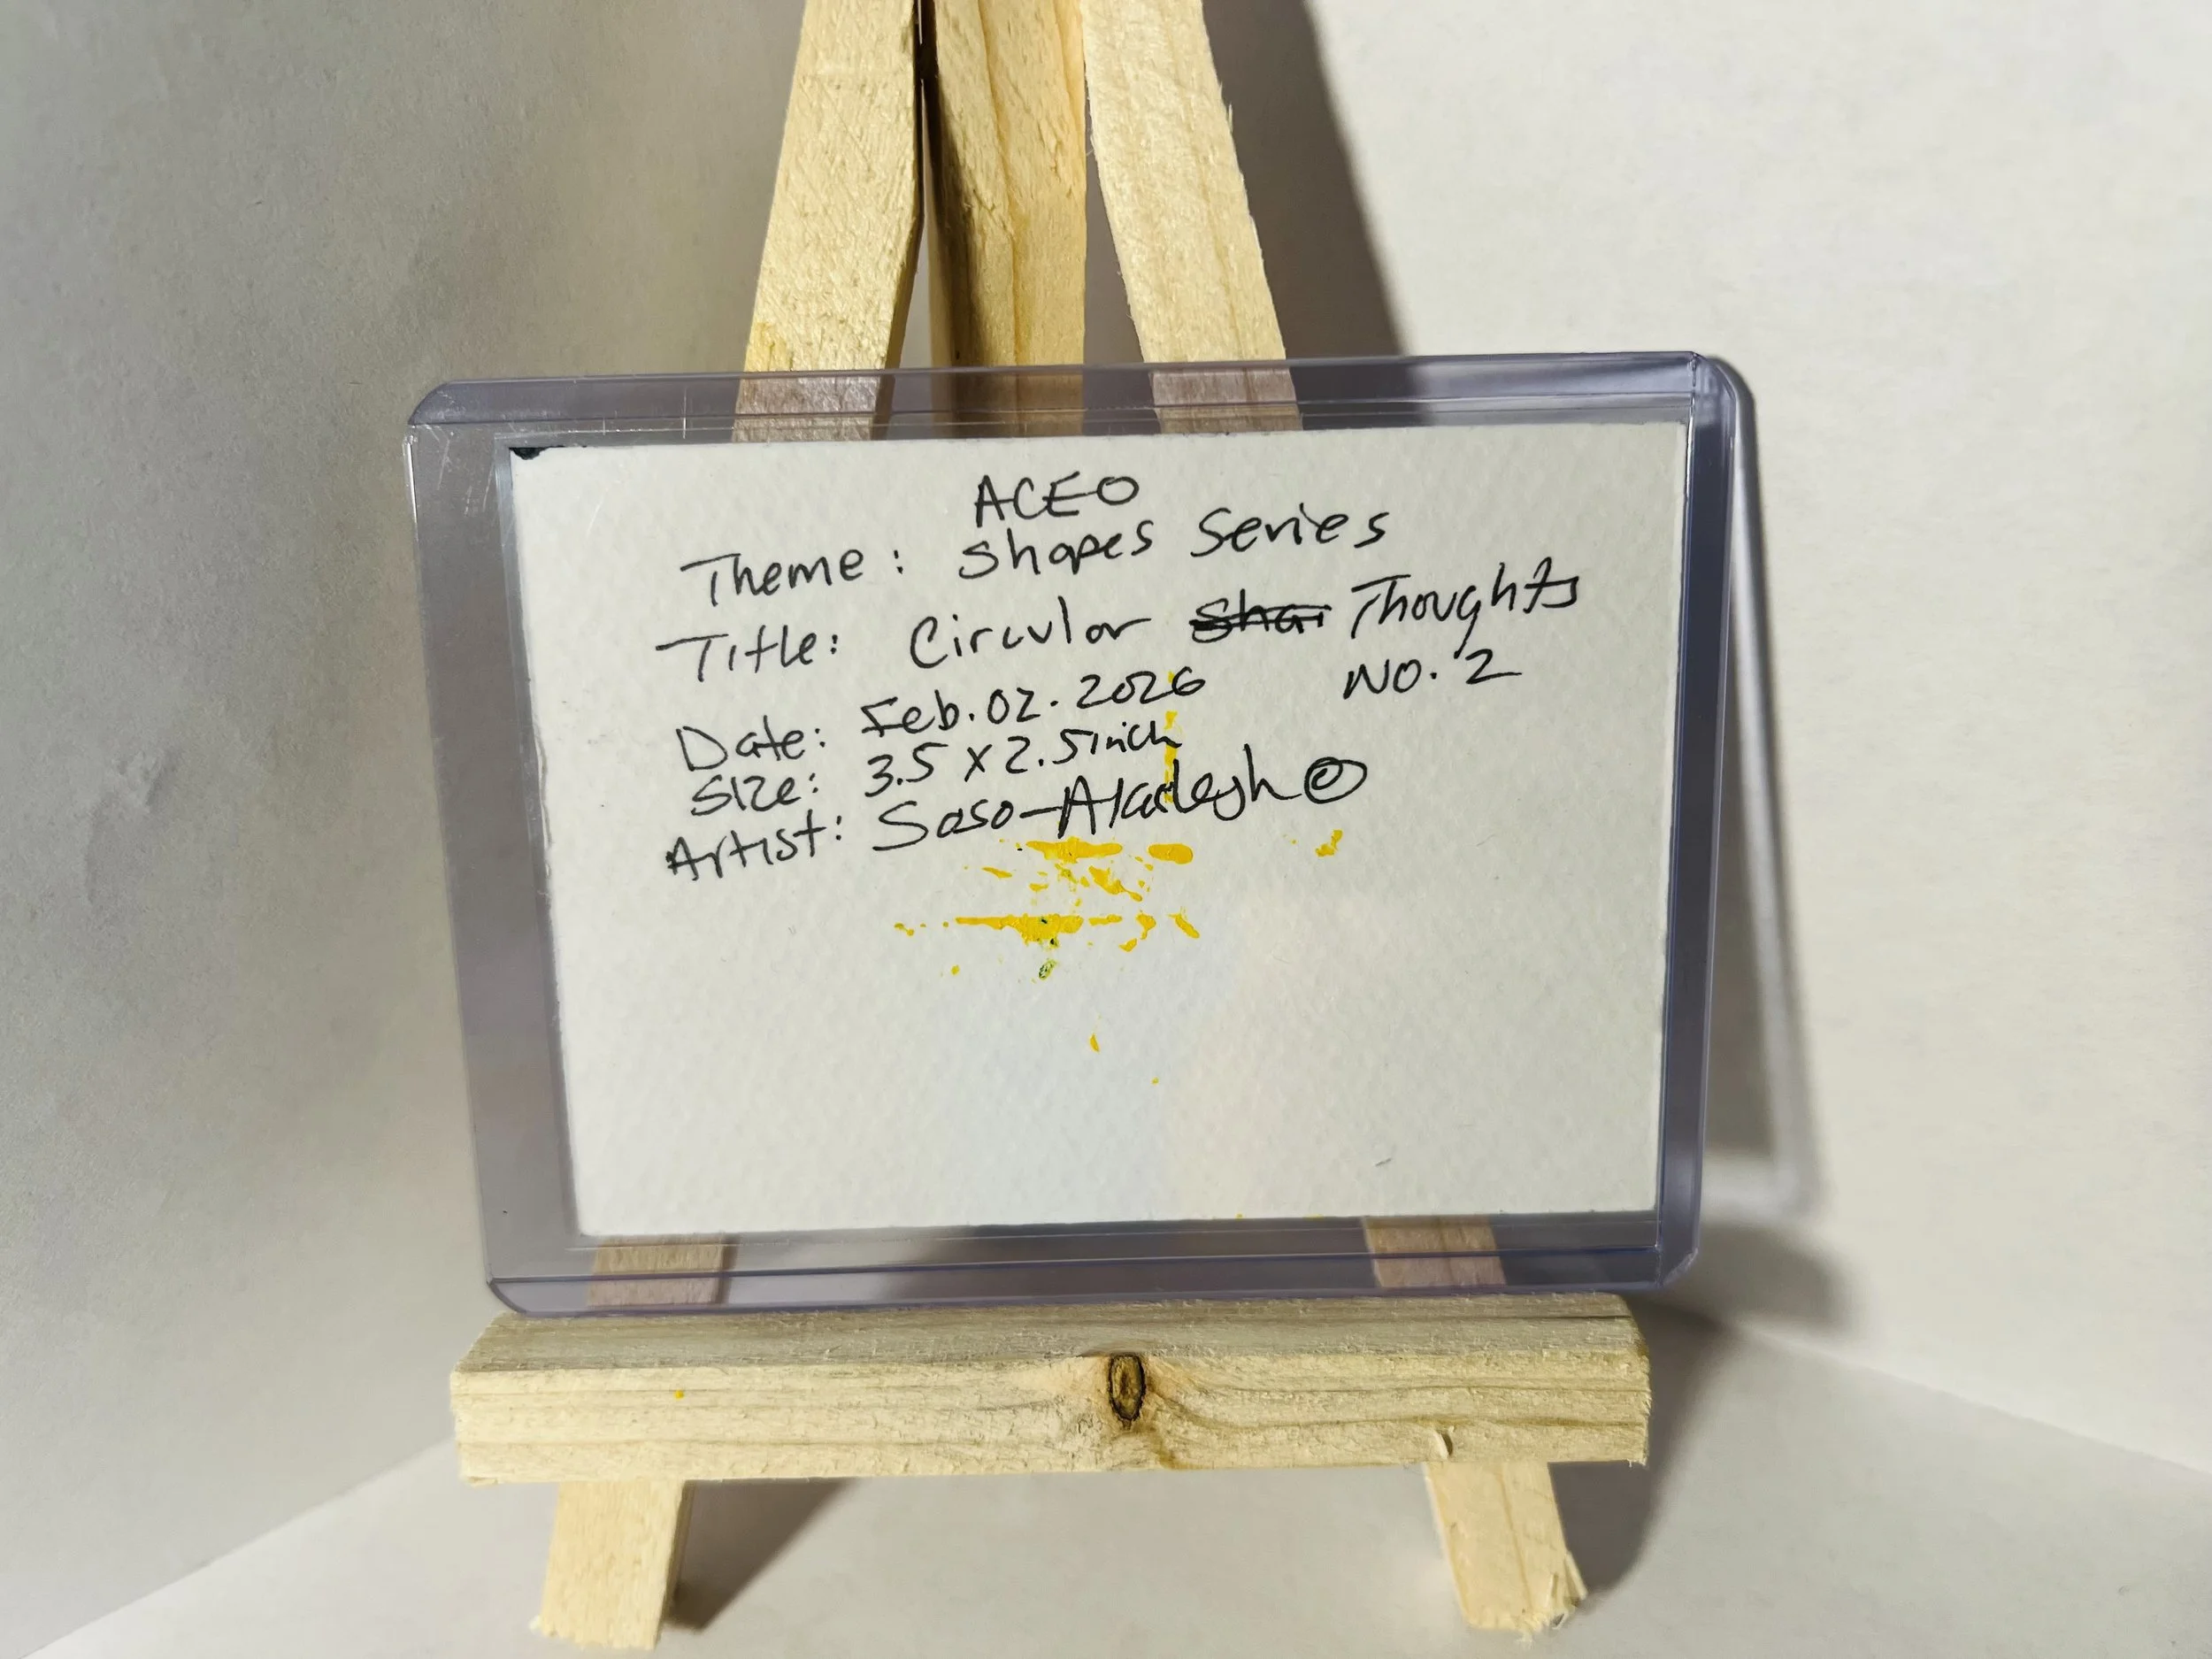 ACEO
Theme: Shapes Series
Title: Circular Thoughts
No. 2
Date: Feb. 02. 2026
Size: 3.5 x 2.5 inch
Artist: Soso-